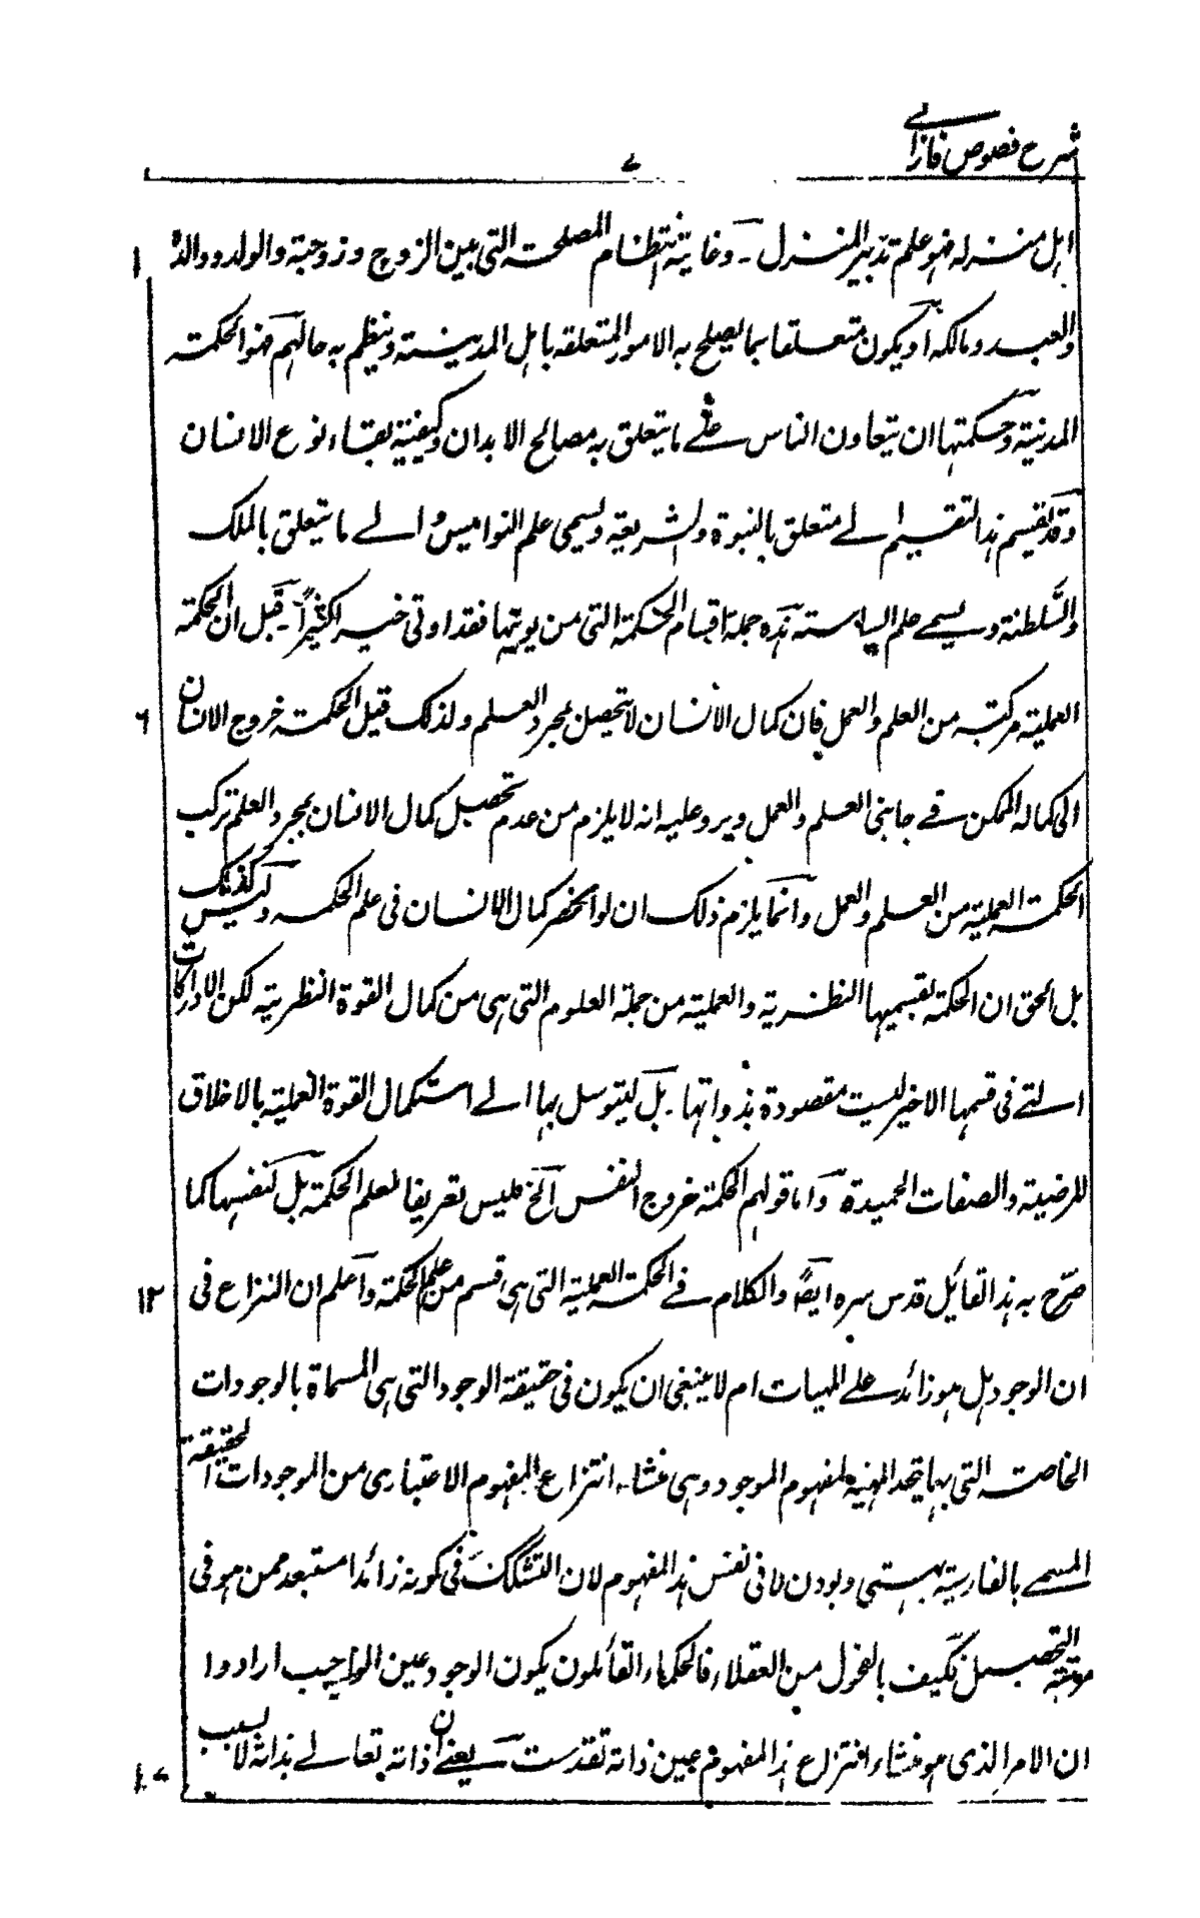 شرح فصوص فارابي
٧
اہل منزلہ فہو علم تدبیر المنزل ۔ وغایتہ انتظام المصلحۃ التی بین الزوج وزوجتہ والولد ووالدہ
١
والعبد ومالکہ او یکون متعلقا بما یصلح بہ الامور المتعلقہ باہل المدینۃ وینظم بہ حالہم فہو الحکمۃ
المدنیۃ وحکمتہا ان یتعاون الناس علی ما یتعلق بہ مصالح الابدان وکیفیۃ بقاء نوع الانسان
وقد یقسم ہذا القسم الے متعلق بالنبوۃ والشریعۃ ویسمی علم النوامیس والے ما یتعلق بالملک
والسلطنۃ ویسمے علم السیاسۃ ہذہ جملۃ اقسام الحکمۃ التی من یوتہا فقد اوتی خیرا کثیرا ۔ قیل ان الحکمۃ
العملیۃ مرکبۃ من العلم والعمل فان کمال الانسان لا تحصیل بمجرد العلم ولذلک قیل الحکمۃ خروج الانسان
٦
الی کمالہ الممکن فے جانبی العلم والعمل ویرد علیہ انہ لا یلزم من عدم تحصیل کمال الانسان بمجرد العلم ترکب
الحکمۃ العملیۃ من العلم والعمل وانما یلزم ذلک ان لو انحصر کمال الانسان فی علم الحکمۃ ولیس کذلک
بل الحق ان الحکمۃ بقسمیہا النظریۃ والعملیۃ من جملۃ العلوم التی ہی من کمال القوۃ النظریۃ لکن الادراکات
التے فی قسمہا الاخیر لیست مقصودۃ بذواتہا ۔ بل لیتوسل بہا الے استکمال القوۃ العملیۃ بالاخلاق
المرضیۃ والصفات الحمیدۃ واما قولہم الحکمۃ خروج النفس الخ فلیس تعریفا لعلم الحکمۃ بل لنفسہا کما
صرّح بہ ہذا القائل قدس سرہ ایضا والکلام فے الحکمۃ العملیۃ التی ہی قسم من علم الحکمۃ واعلم ان النزاع فی
١٢
ان الوجود ہل ہو زائد علے المہیات ام لا ینبغی ان یکون فی حقیقۃ الوجود التی ہی المسماۃ بالوجودات
الخاصۃ التی بہا یتحد المہیۃ لمفہوم الموجود وہی منشاء انتزاع المفہوم الاعتباری من الموجودات الحقیقۃ
المسمے بالفارسیۃ بہستی وبودن لا فی نفس ہذا المفہوم لان التشکک فی کونہ زائدا مستبعد ممن ہو فی
مرتبۃ التحصیل فکیف بالفحول من العقلاء فالحکماء القائلون بکون الوجود عین الواجب ارادوا
ان الامر الذی ہو منشاء انتزاع ہذا المفہوم عین ذاتہ تقدست یعنے ان ذاتہ تعالے بذاتہ لا بسبب
١٧